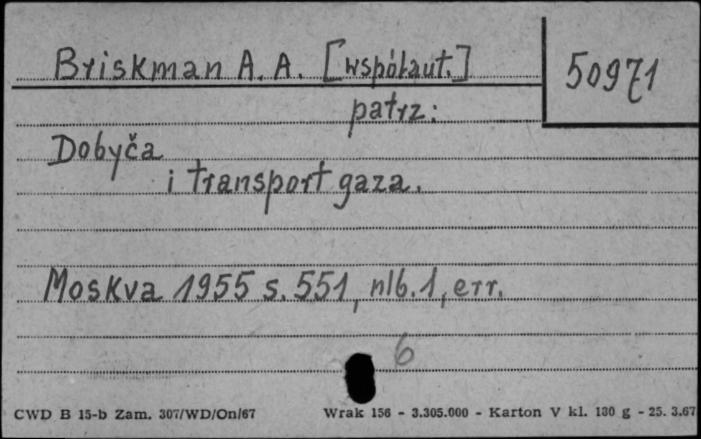 Briskman A. A. [współaut.]
50971
patrz:
Dobyča
i transport gaza.
Moskva 1955 s. 551, nlb. 1, err.
6
CWD B 15-b Zam. 307/WD/On/67 Wrak 156 - 3.305.000 - Karton V kl. 130 g - 25. 3.67